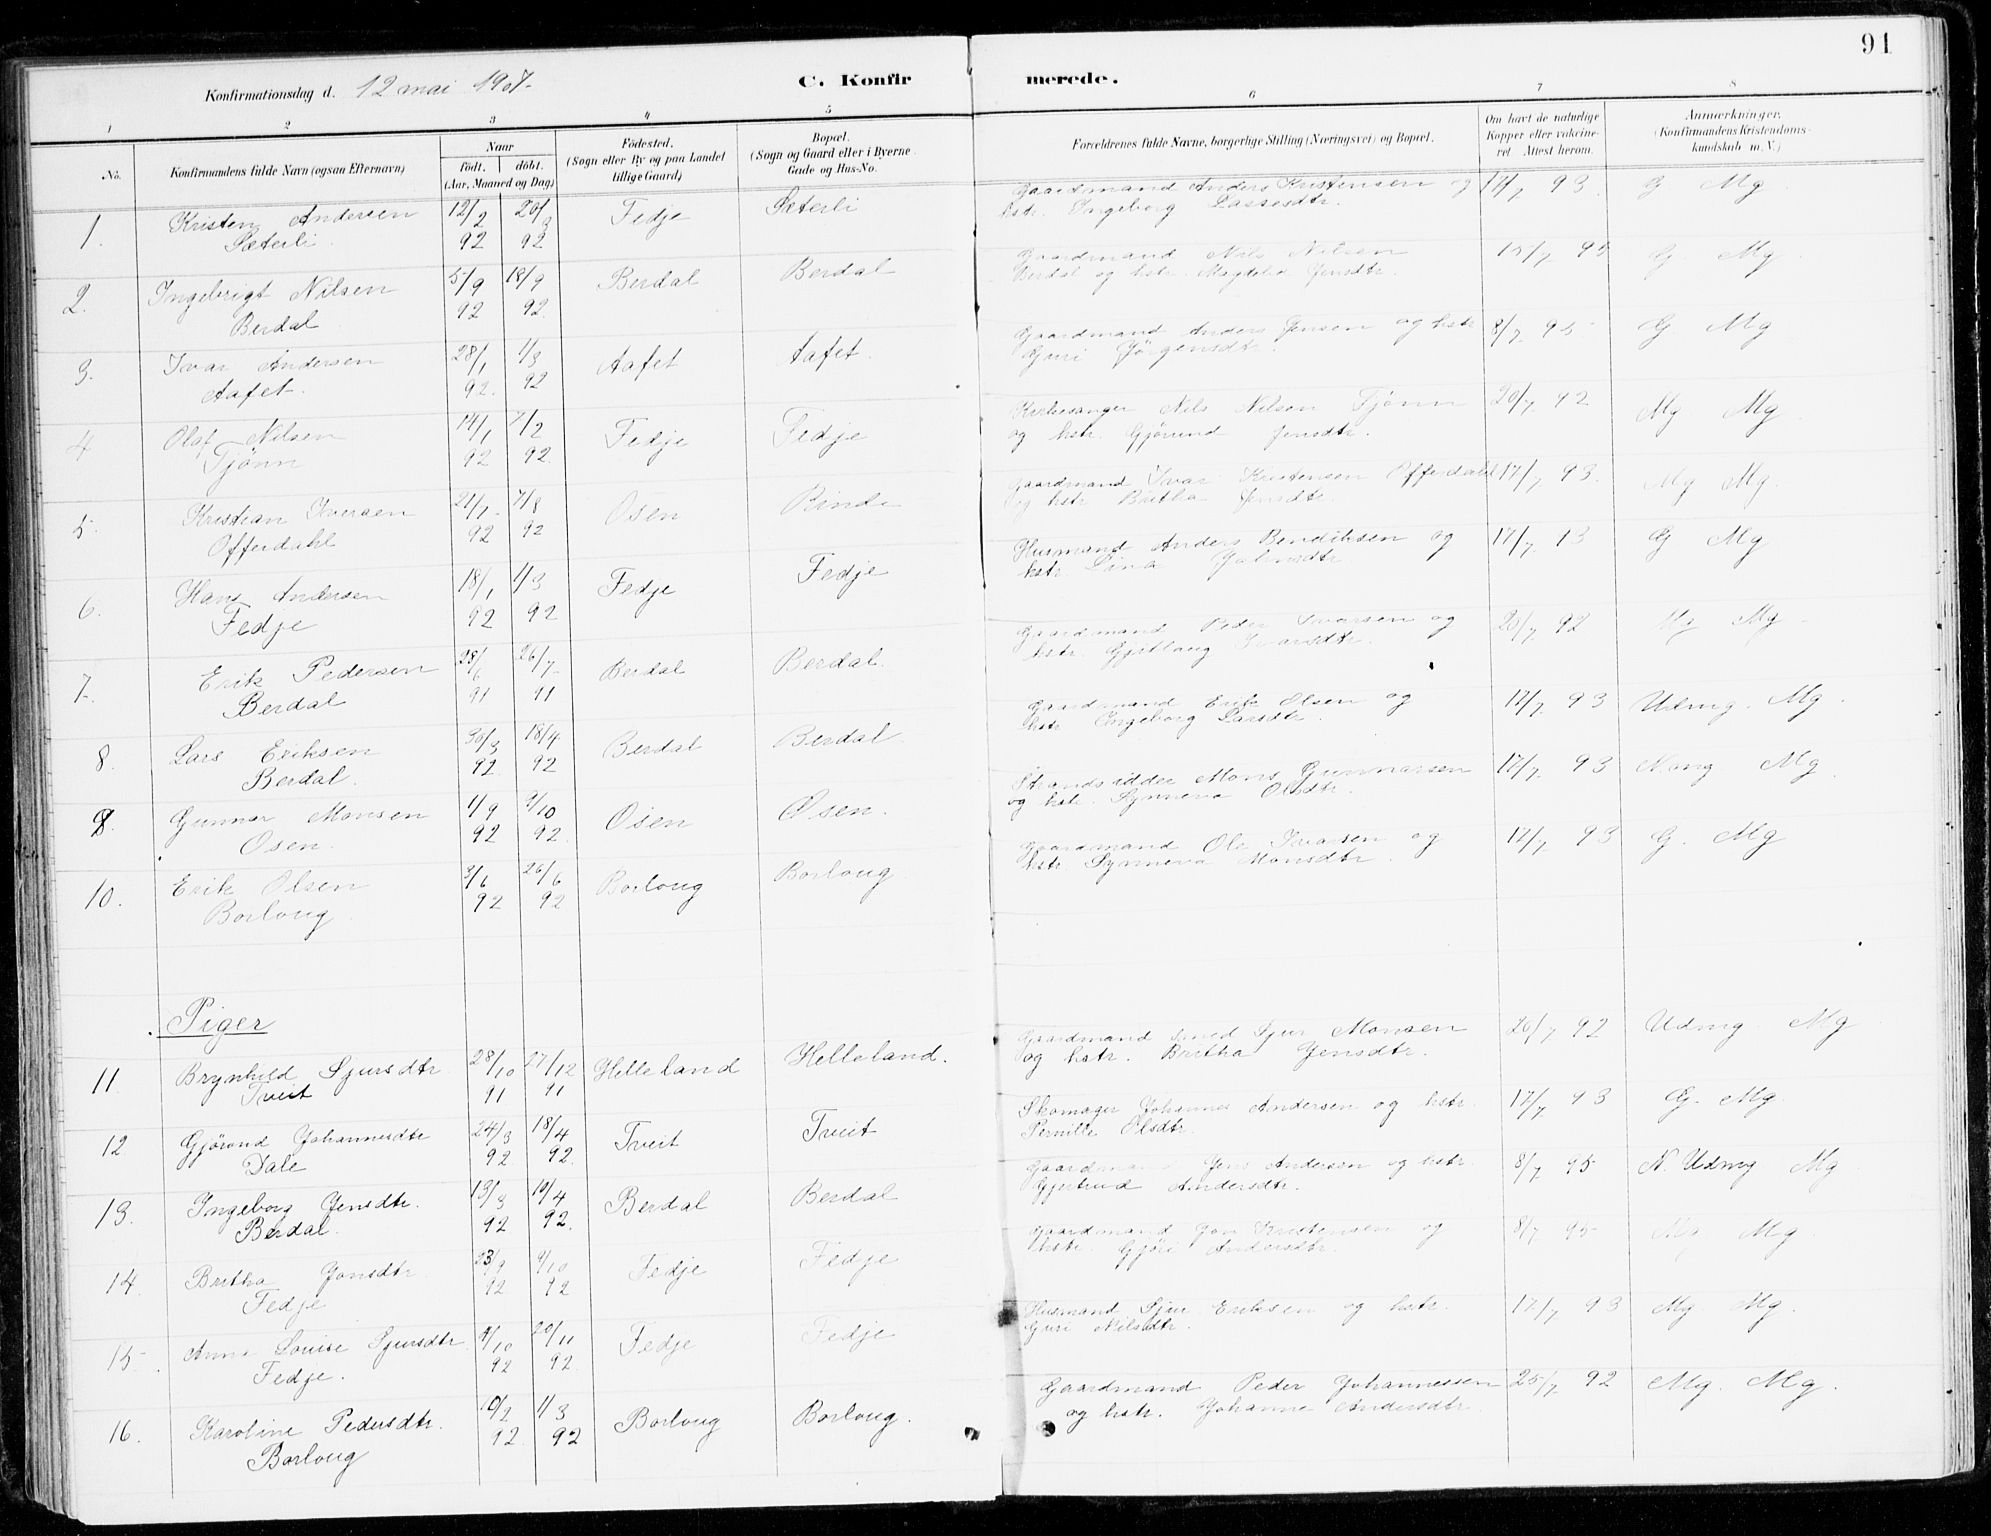 91
Konfirmationsdag d. 12 mai 1907.
C. Konfirmerede.
1 2 3 4 5 6 7 8
No.
Konfirmandens fulde Navn (ogsaa Efternavn)
Naar
født. døbt.
(Aar, Maaned og Dag)
Fødested.
(Sogn eller By og paa Landet
tillige Gaard)
Bopæl.
(Sogn og Gaard eller i Byerne
Gade og Hus-No.
Forældrenes fulde Navne, borgerlige Stilling (Næringsvei) og Bopæl.
Om havt de naturlige
Kopper eller vakcine-
ret Attest herom.
Anmærkninger.
(Konfirmandens Kristendoms-
kundskab m. V.)
1. Kristen Andersen 12/2 20/3 Fedje Sæterli Gaardmand Anders Kristensen og 17/7 93. G Mg
Sæterli. 92 92 hstr. Ingeborg Lassesdtr.
2. Ingebrigt Nilsen 5/9 18/9 Berdal Berdal Gaardmand Nils Nilsen 15/7 95 G. Mg
Berdal 92 92. Berdal og hstr. Magdela Jensdtr.
3. Ivar Andersen 28/1 1/3 Aafet Aafet. Gaardmand Anders Jensen og hstr 8/7 95 G Mg
Aafet. 92. 92 Guri Jørgensdt.
4 Olaf Nilsen 14/1 7/2 Fedje Fedje Kirkesanger Nils Nilsen Tjønn 20/7 92 Mg Mg
Tjønn 92 92. og hstr. Gjørund Jensdtr.
5. Kristian Iversen 21/7 7/8 Osen Rinde Gaardmand Ivar Kristensen Offerdahl 17/7 93. Mg Mg.
Offerdahl 92 92 og hstr Britha Jensdtr.
6. Hans Andersen 18/1 1/3 Fedje Fedje Husmand Anders Bendiksen og 17/7 13 G Mg
Fedje 92 92 hstr. Lina Johnsdtr.
7. Erik Pedersen 28/6 26/7 Berdal Berdal. Gaardmand Peder Ivarsen og 20/7 92 Mg Mg
Berdal 91 91 hstr. Gjitlaug Ivarsdtr.
8. Lars Eriksen 30/3 18/4 Berdal Berdal Gaardmand Erik Olsen og 17/7 93 Udmg. Mg.
Berdal. 92. 92 hstr Ingeborg Larsdtr.
9. Gunnar Monsen 1/9 9/10 Osen Osen. Strandsidder Mons Gunnarsen 17/7 93 Nong Mg
Osen. 92 92. og hstr. Synneva Olsdtr.
10. Erik Olsen 3/6 26/6 Borloug Borloug Gaardmand Ole Ivarsen og 17/7 93 G. Mg
Borloug 92 92 hstr. Synneva Monsdtr.
Piger
11. Brynhild Sjursdtr 28/10 27/12 Helleland Helleland. Gaardmand Smed Sjur Monsen 20/7 92 Udmg. Mg
Tveit 91 91 og hstr. Britha Jensdtr.
12 Gjørond Johannesdtr 24/3 18/4 Tveit Tveit Skomager Johannes Andersen og hstr. 17/7 93 G. Mg.
Dale 92 92. Pernille Olsdtr.
13. Ingeborg Jensdtr. 13/3 10/4 Berdal Berdal Gaardmand Jens Andersen og hstr. 8/7 95 N. Udmg Mg
Berdal. 92 92. Gjertrud Andersdtr.
14. Britha Jonsdtr 23/9 9/10 Fedje Fedje Gaardmand Jon Kristensen og 8/7 95 Mg Mg.
Fedje 92 92 hstr. Gjøri Andersdtr.
15. Anna Louise Sjursdtr 4/10 20/11 Fedje Fedje Husmand Sjur Eriksen og hstr. 17/7 93 Mg Mg.
Fedje. 92 92. Guri Nilsdtr.
16. Karoline Pedersdtr. 10/2 1/3 Borloug Borloug. Gaardmand Peder Johannessen 25/7 92 Mg. Mg.
Borloug 92. 92 og hstr. Johanne Andersdtr.